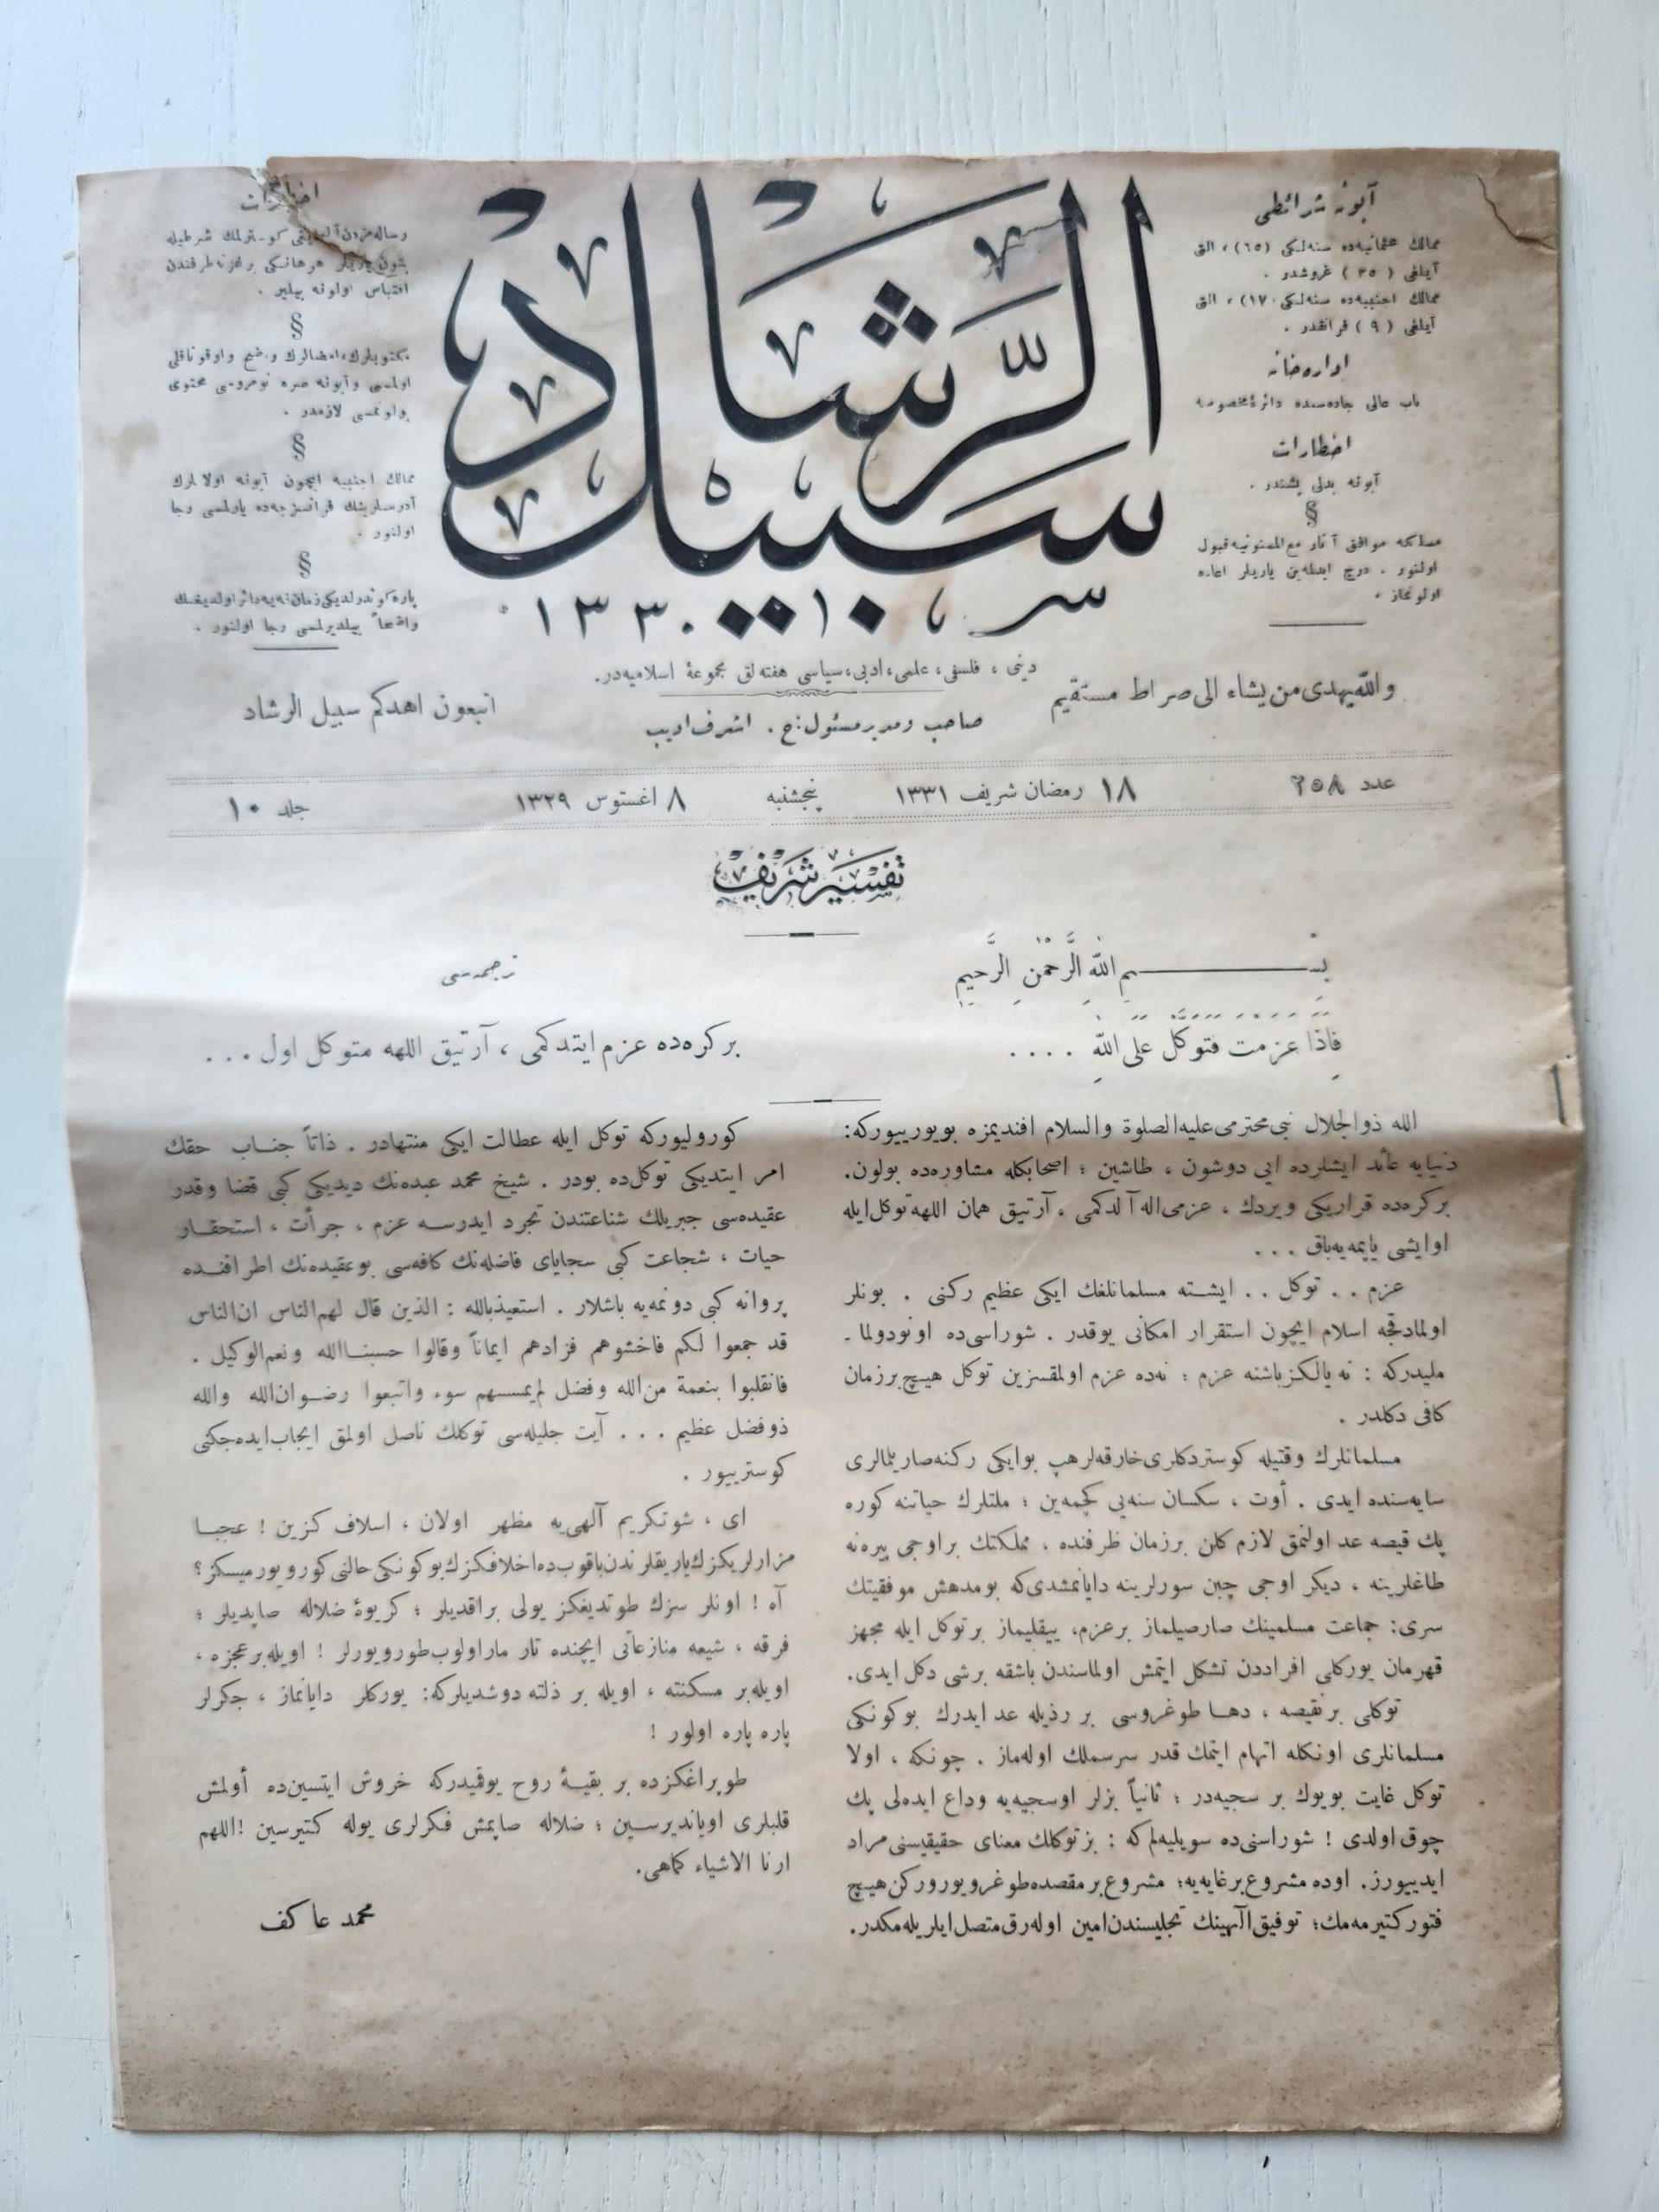 سبيل الرشاد
١٣٣٠
آبونه شرائطى
ممالك عثمانيه‌ده سنه‌لكى (٦٥) ، التى
آيلغى ( ٣٥ ) غروشدر .
ممالك اجنبيه‌ده سنه‌لكى (١٧) ، التى
آيلغى ( ٩ ) فرانقدر .
اداره‌خانه
باب عالى جاده‌سنده دائرۀ مخصوصه
اخطارات
آبونه بدلى پشيندر .
§
مسلكه موافق آثار مع‌الممنونيه قبول
اولنور . درج ايدلمه‌ين يازيلر اعاده
اولونماز .
اخطارات
رساله‌مزدن آلنديغى كوسترلمك شرطيله
بتون يازيلر هر هانكى بر غزته طرفندن
اقتباس اولونه بيلير .
§
مكتوبلرك، امضالرك واضح واوقوناقلى
اولمسى وآبونه صره نومروسى محتوى
بولونمسى لازمدر .
§
ممالك اجنبيه ايچون آبونه اولانلرك
آدرسلرينك فرانسزجه‌ده يازلمسى رجا
اولنور .
§
پاره كوندرلديكى زمان نه‌يه دائر اولديغنك
واضحاً بيلديرلمسى رجا اولنور .
دينى ، فلسفى، علمى، ادبى، سياسى هفته‌لق مجموعۀ اسلاميه‌در.
والله يهدى من يشاء الى صراط مستقيم
صاحب ومدير مسئول: ح . اشرف اديب
اتبعون اهدكم سبيل الرشاد
عدد ٢٥٨
١٨ رمضان شريف ١٣٣١
پنجشنبه
٨ اغستوس ١٣٢٩
جلد ١٠
تفسير شريف
بِسْمِ اللّٰهِ الرَّحْمٰنِ الرَّحِيمِ
فَاِذَا عَزَمْتَ فَتَوَكَّلْ عَلَى اللّٰهِ ....
ترجمه‌سى
بر كره‌ده عزم ايتدكمى ، آرتيق اللهه متوكل اول ...
الله ذوالجلال نبى محترمى عليه‌الصلوة والسلام افنديمزه بويورييوركه:
دنيايه عائد ايشلرده ايى دوشون ، طاشين ؛ اصحابكله مشاوره‌ده بولون.
بر كره‌ده قراريكى ويردك ، عزمى اله آلدكمى ، آرتيق همان اللهه توكل ايله
او ايشى ياپمه‌يه باق ...
عزم .. توكل .. ايشته مسلمانلغك ايكى عظيم ركنى . بونلر
اولمادقجه اسلام ايچون استقرار امكانى يوقدر . شوراسى‌ده اونودولما-
مليدركه : نه يالكز باشنه عزم ؛ نه‌ده عزم اولمقسزين توكل هيچ بر زمان
كافى دكلدر .
مسلمانلرك وقتيله كوستردكلرى خارقه‌لر هپ بو ايكى ركنه صاريلمالرى
سايه‌سنده ايدى . أوت ، سكسان سنه‌يى كچمه‌ين ؛ ملتلرك حياتنه كوره
پك قيصه عد اولنمق لازم كلن بر زمان ظرفنده ، مملكتك بر اوجى پيره‌نه
طاغلرينه ، ديكر اوجى چين سورلرينه دايانمشدى‌كه بو مدهش موفقيتك
سرى: جماعت مسلمينك صارصيلماز بر عزم، ييقليماز بر توكل ايله مجهز
قهرمان يوركلى افراددن تشكل ايتمش اولماسندن باشقه برشى دكل ايدى.
توكلى بر نقيصه ، دها طوغروسى بر رذيله عد ايدرك بوكونكى
مسلمانلرى اونكله اتهام ايتمك قدر سرسملك اوله‌ماز . چونكه ، اولا
توكل غايت بويوك بر سجيه‌در ؛ ثانياً بزلر اوسجيه‌يه وداع ايده‌لى پك
چوق اولدى ! شوراسنى‌ده سويليه‌لم كه : بز توكلك معناى حقيقيسنى مراد
ايدييورز. اوده مشروع بر غايه‌يه؛ مشروع بر مقصده طوغرو يوروركن هيچ
فتور كتيرمه‌مك؛ توفيق آلهينك تجليسندن امين اوله‌رق متصل ايلريله‌مكدر.
كورولييوركه توكل ايله عطالت ايكى منتهادر . ذاتاً جناب حقك
امر ايتديكى توكل‌ده بودر . شيخ محمد عبده‌نك ديديكى كبى قضا وقدر
عقيده‌سى جبريلك شناعتندن تجرد ايدرسه عزم ، جرأت ، استحقار
حيات ، شجاعت كبى سجاياى فاضله‌نك كافه‌سى بو عقيده‌نك اطرافنده
پروانه كبى دونمه‌يه باشلار . استعيذ بالله : الذين قال لهم الناس ان الناس
قد جمعوا لكم فاخشوهم فزادهم ايماناً وقالوا حسبنا الله ونعم الوكيل .
فانقلبوا بنعمة من الله وفضل لم يمسسهم سوء واتبعوا رضوان الله والله
ذو فضل عظيم ... آيت جليله‌سى توكلك ناصل اولمق ايجاب ايده‌جكنى
كوسترييور .
اى ، شو تكريم آلهى‌يه مظهر اولان ، اسلاف كزين ! عجبا
مزارلريكزك ياريقلرندن باقوب‌ده اخلافكزك بوكونكى حالنى كورويورميسكز؟
آه ! اونلر سزك طوتديغكز يولى براقديلر ؛ كريوۀ ضلاله صاپديلر ؛
فرقه ، شيعه منازعاتى ايچنده تار مار اولوب طورويورلر ! اويله بر عجزه ،
اويله بر مسكنته ، اويله بر ذلته دوشديلركه: يوركلر دايانماز ، جكرلر
پاره پاره اولور !
طوپراغكزده بر بقيۀ روح يوقميدركه خروش ايتسين‌ده أولمش
قلبلرى اوياندیرسين ؛ ضلاله صاپمش فكرلرى يوله كتيرسين ! اللهم
ارنا الاشياء كماهى.
محمد عاكف